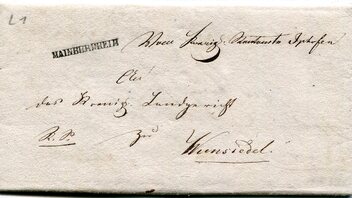 L1
MAINBERNHEIM
Vom Königl. Rentamte Iphofen
An
das Koenigl. Landgericht
R. S. zu
Wunsiedel.